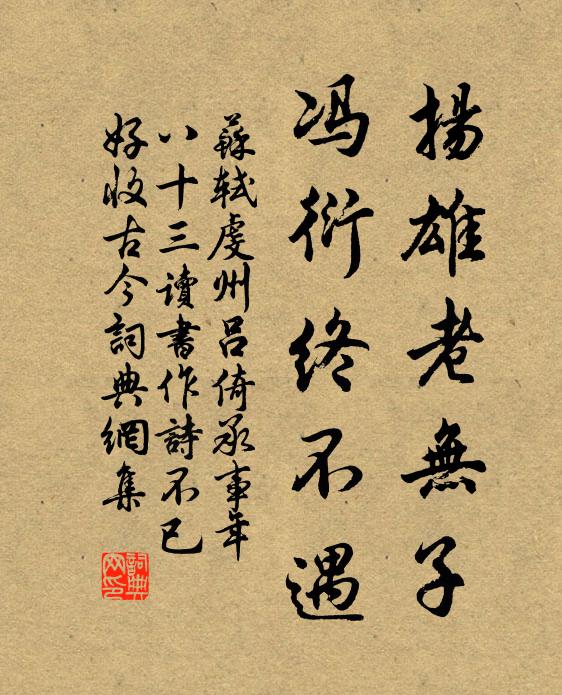 揚雄老無子
冯衍終不遇
蘇軾虔州呂倚承事年
八十三讀書作詩不已
好收古今詞典網集
詞典網印